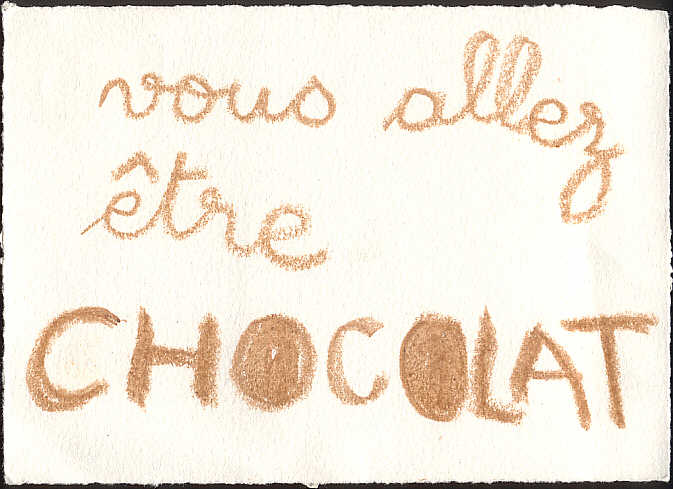 vous allez
être
CHOCOLAT